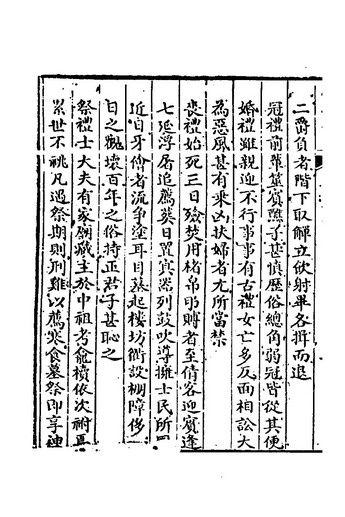 二爵負者階下取觶立飲射畢各揖而退
冠禮前輩筮賓醮子甚慎歷俗總角弱冠皆從其便
婚禮雖親迎不行事事有古禮女亡多反面相訟大
為惡風甚有來凶扶婦者尤所當禁
喪禮始死三日殮焚用楮帛弔賻者至倩客迎賓逢
七延浮屠追薦葬日置冥器列鼓吹導擁士民所同
近日牙儈者流爭塗耳目墓起樓坊衢設棚障侈一
日之觀壞百年之俗持正君子甚恥之
祭禮士大夫有家廟藏主於中祖考龕櫝依次祔
累世不祧凡遇祭期則刑雞以薦寒食墓祭即享